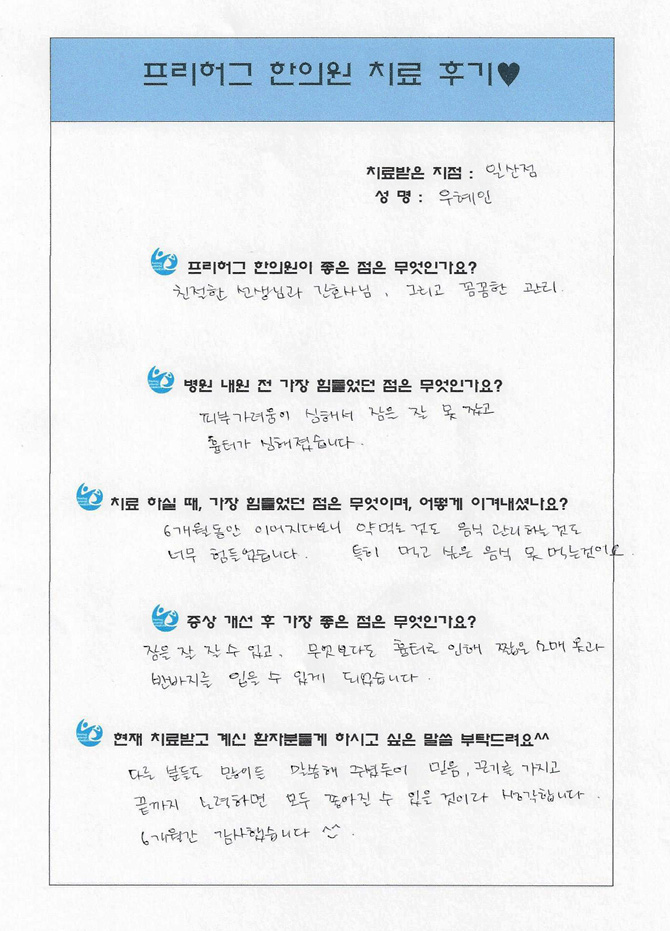 프리허그 한의원 치료 후기♥
치료받은 지점 : 일산점
성 명 : 우혜인
프리허그 한의원이 좋은 점은 무엇인가요?
친적한 선생님과 간호사님, 그리고 꼼꼼한 관리.
병원 내원 전 가장 힘들었던 점은 무엇인가요?
피부가려움이 심해서 잠을 잘 못 잤고
흉터가 심해졌습니다.
치료 하실 때, 가장 힘들었던 점은 무엇이며, 어떻게 이겨내셨나요?
6개월동안 이어지다보니 약먹는것도 음식 관리하는것도
너무 힘들었습니다. 특히 먹고 싶은 음식 못 먹는것이요.
증상 개선 후 가장 좋은 점은 무엇인가요?
잠을 잘 잘 수 있고, 무엇보다도 흉터로 인해 짧은 소매 옷과
반바지를 입을 수 있게 되었습니다.
현재 치료받고 계신 환자분들게 하시고 싶은 말씀 부탁드려요^^
다른 분들도 많이들 말씀해 주셨듯이 믿음, 끈기를 가지고
끝까지 노력하면 모두 좋아질 수 있을 것이라 생각합니다.
6개월간 감사했습니다 ^^.